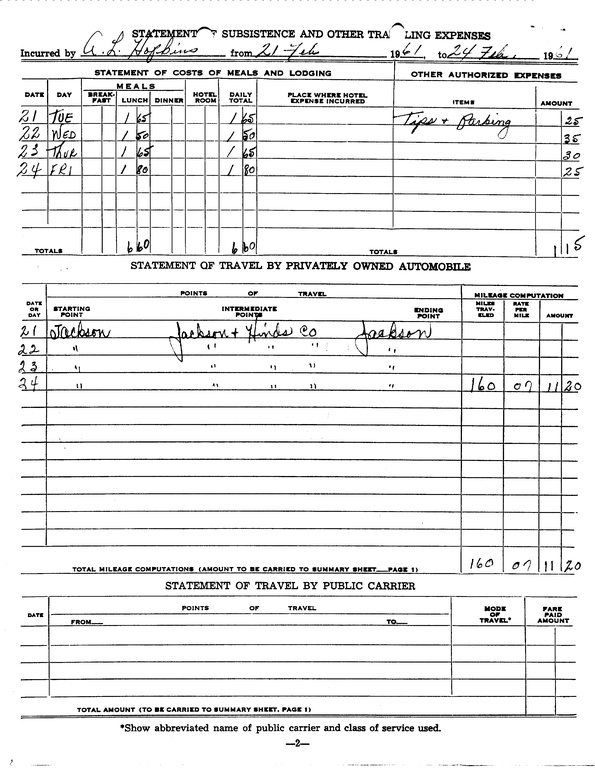 STATEMENT OF SUBSISTENCE AND OTHER TRA LING EXPENSES
Incurred by A. L. Hopkins from 21 Feb 1961, to 24 Feb. 1961
STATEMENT OF COSTS OF MEALS AND LODGING OTHER AUTHORIZED EXPENSES
DATE DAY MEALS BREAK-FAST LUNCH DINNER HOTEL ROOM DAILY TOTAL PLACE WHERE HOTEL EXPENSE INCURRED ITEMS AMOUNT
21 TUE 1 65 1 65 Tips + Parking 25
22 WED 1 50 1 50 35
23 Thur 1 65 1 65 30
24 FRI 1 80 1 80 25
TOTALS 6 60 6 60 TOTALS 1 15
STATEMENT OF TRAVEL BY PRIVATELY OWNED AUTOMOBILE
DATE OR DAY POINTS OF TRAVEL STARTING POINT INTERMEDIATE POINTS ENDING POINT MILEAGE COMPUTATION MILES TRAV-ELED RATE PER MILE AMOUNT
21 Jackson Jackson + Hinds Co Jackson
22 " " " " "
23 " " " " "
24 " " " " " 160 07 11 20
TOTAL MILEAGE COMPUTATIONS (AMOUNT TO BE CARRIED TO SUMMARY SHEET PAGE 1) 160 07 11 20
STATEMENT OF TRAVEL BY PUBLIC CARRIER
DATE POINTS OF TRAVEL FROM TO MODE OF TRAVEL* FARE PAID AMOUNT
TOTAL AMOUNT (TO BE CARRIED TO SUMMARY SHEET, PAGE 1)
*Show abbreviated name of public carrier and class of service used.
—2—